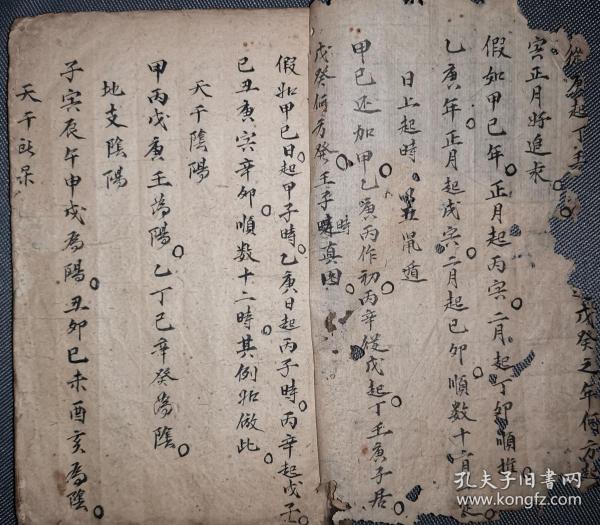 戊癸之年何方發
寅正月好追求
假如甲己年正月起丙寅二月起丁卯順推
乙庚年正月起戊寅二月起己卯順数十二月
日上起時 五鼠遁
甲己还加甲乙庚丙作初丙辛從戊起丁壬庚子居
戊癸何方發壬子時真因
時
假如甲己日起甲子時乙庚日起丙子時丙辛起戊子
己丑庚寅辛卯順数十二時其例如倣此
天干陰陽
甲丙戊庚壬為陽乙丁己辛癸為陰
地支陰陽
子寅辰午申戌為陽丑卯巳未酉亥為陰
天干
孔夫子旧书网
www.kongfz.com